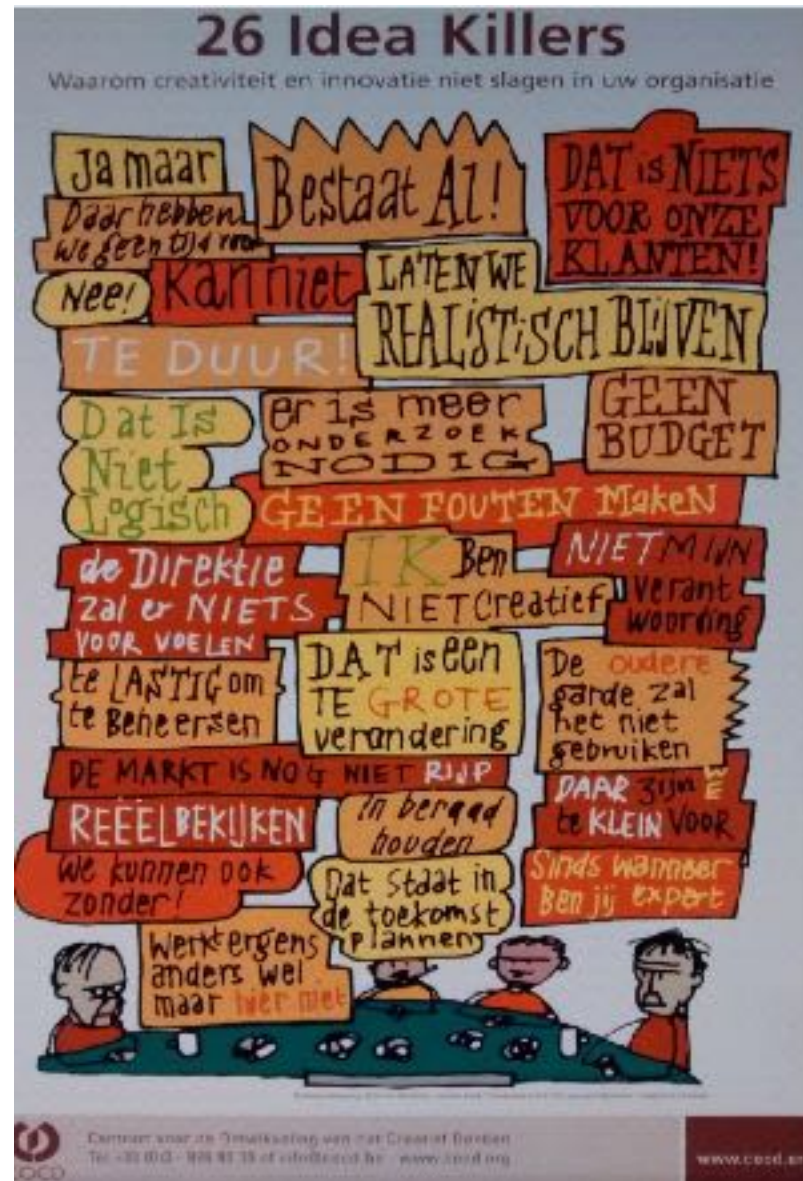 26 Idea Killers
Waarom creativiteit en innovatie niet slagen in uw organisatie
Ja maar
Bestaat Al!
DAT is NIETS
VOOR ONZE
KLANTEN!
Daar hebben
we geen tijd voor
Nee!
Kan niet
LATEN WE
REALiSTiSCH BLiJVEN
TE DUUR!
Dat Is
Niet
Logisch
er is meer
ONDERZOEK
NODIG
GEEN
BUDGET
GEEN FOUTEN Maken
de Direktie
zal er NIETS
VOOR VOELEN
IK Ben
NIET Creatief
NIET MIJN
verant
woording
te LASTIG om
te Beheersen
DAT is een
TE GROTE
verandering
De oudere
garde zal
het niet
gebruiken
DE MARKT IS NOG NIET RIJP
REËEL BEKIJKEN
in beraad
houden
DAAR zijn WE
te KLEIN VOOR
We kunnen ook
zonder!
Dat staat in
de toekomst
plannen
Sinds wanneer
Ben jij expert
Werkt ergens
anders wel
maar hier niet
COCD
Centrum voor de Ontwikkeling van het Creatief Denken
www.cocd.org